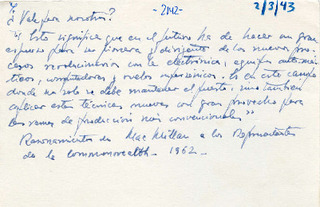 -2142-
2/3/43
¿Vale para nosotros?
"Esto significa que en el futuro ha de hacer un gran
esfuerzo para ser pionera y dirigente de los nuevos pro-
cesos revolucionarios con la electrónica, equipos automá-
ticos, computadores y vuelos supersónicos. Es en este campo
donde no solo se debe mantener el puesto, sino también
aplicar estas técnicas nuevas con gran provecho para
los ramos de producción más convencionales"
Razonamientos de Mac Millan a los Representantes
de la Commonwealth. 1962.-